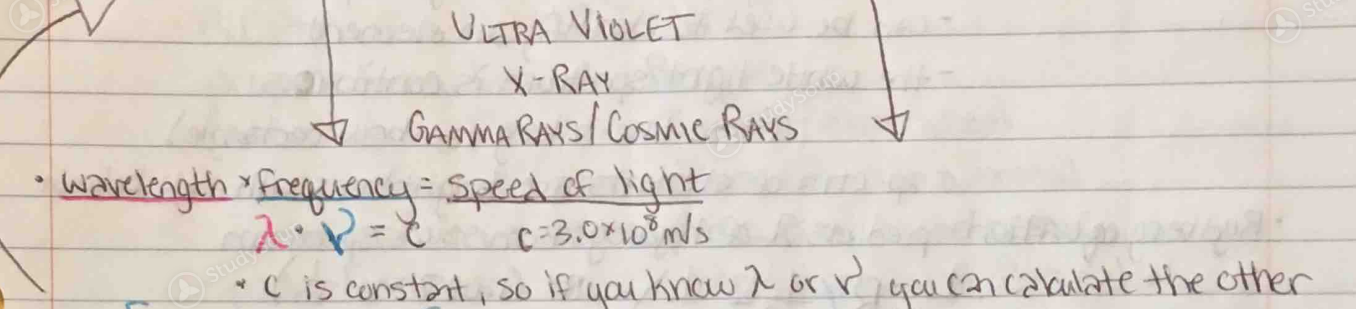 ULTRA VIOLET
X-RAY
GAMMA RAYS/COSMIC RAYS
• wavelength × frequency = speed of light
λ • ν = c   c=3.0×10⁸ m/s
• c is constant, so if you know λ or ν, you can calculate the other